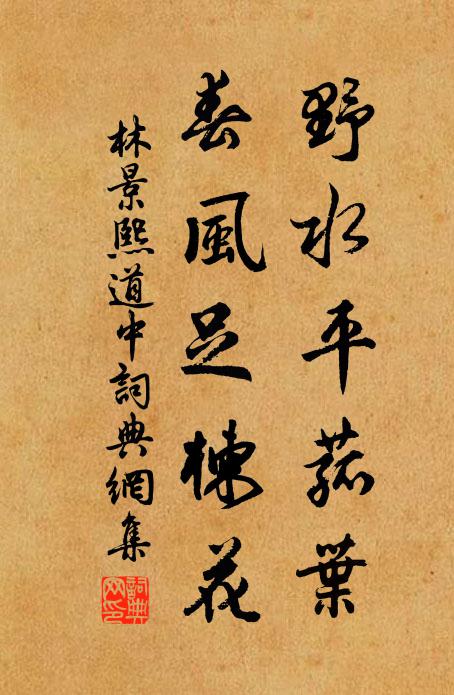 野水平菰葉
春風足楝花
林景熙道中詞典網集
詞典網印